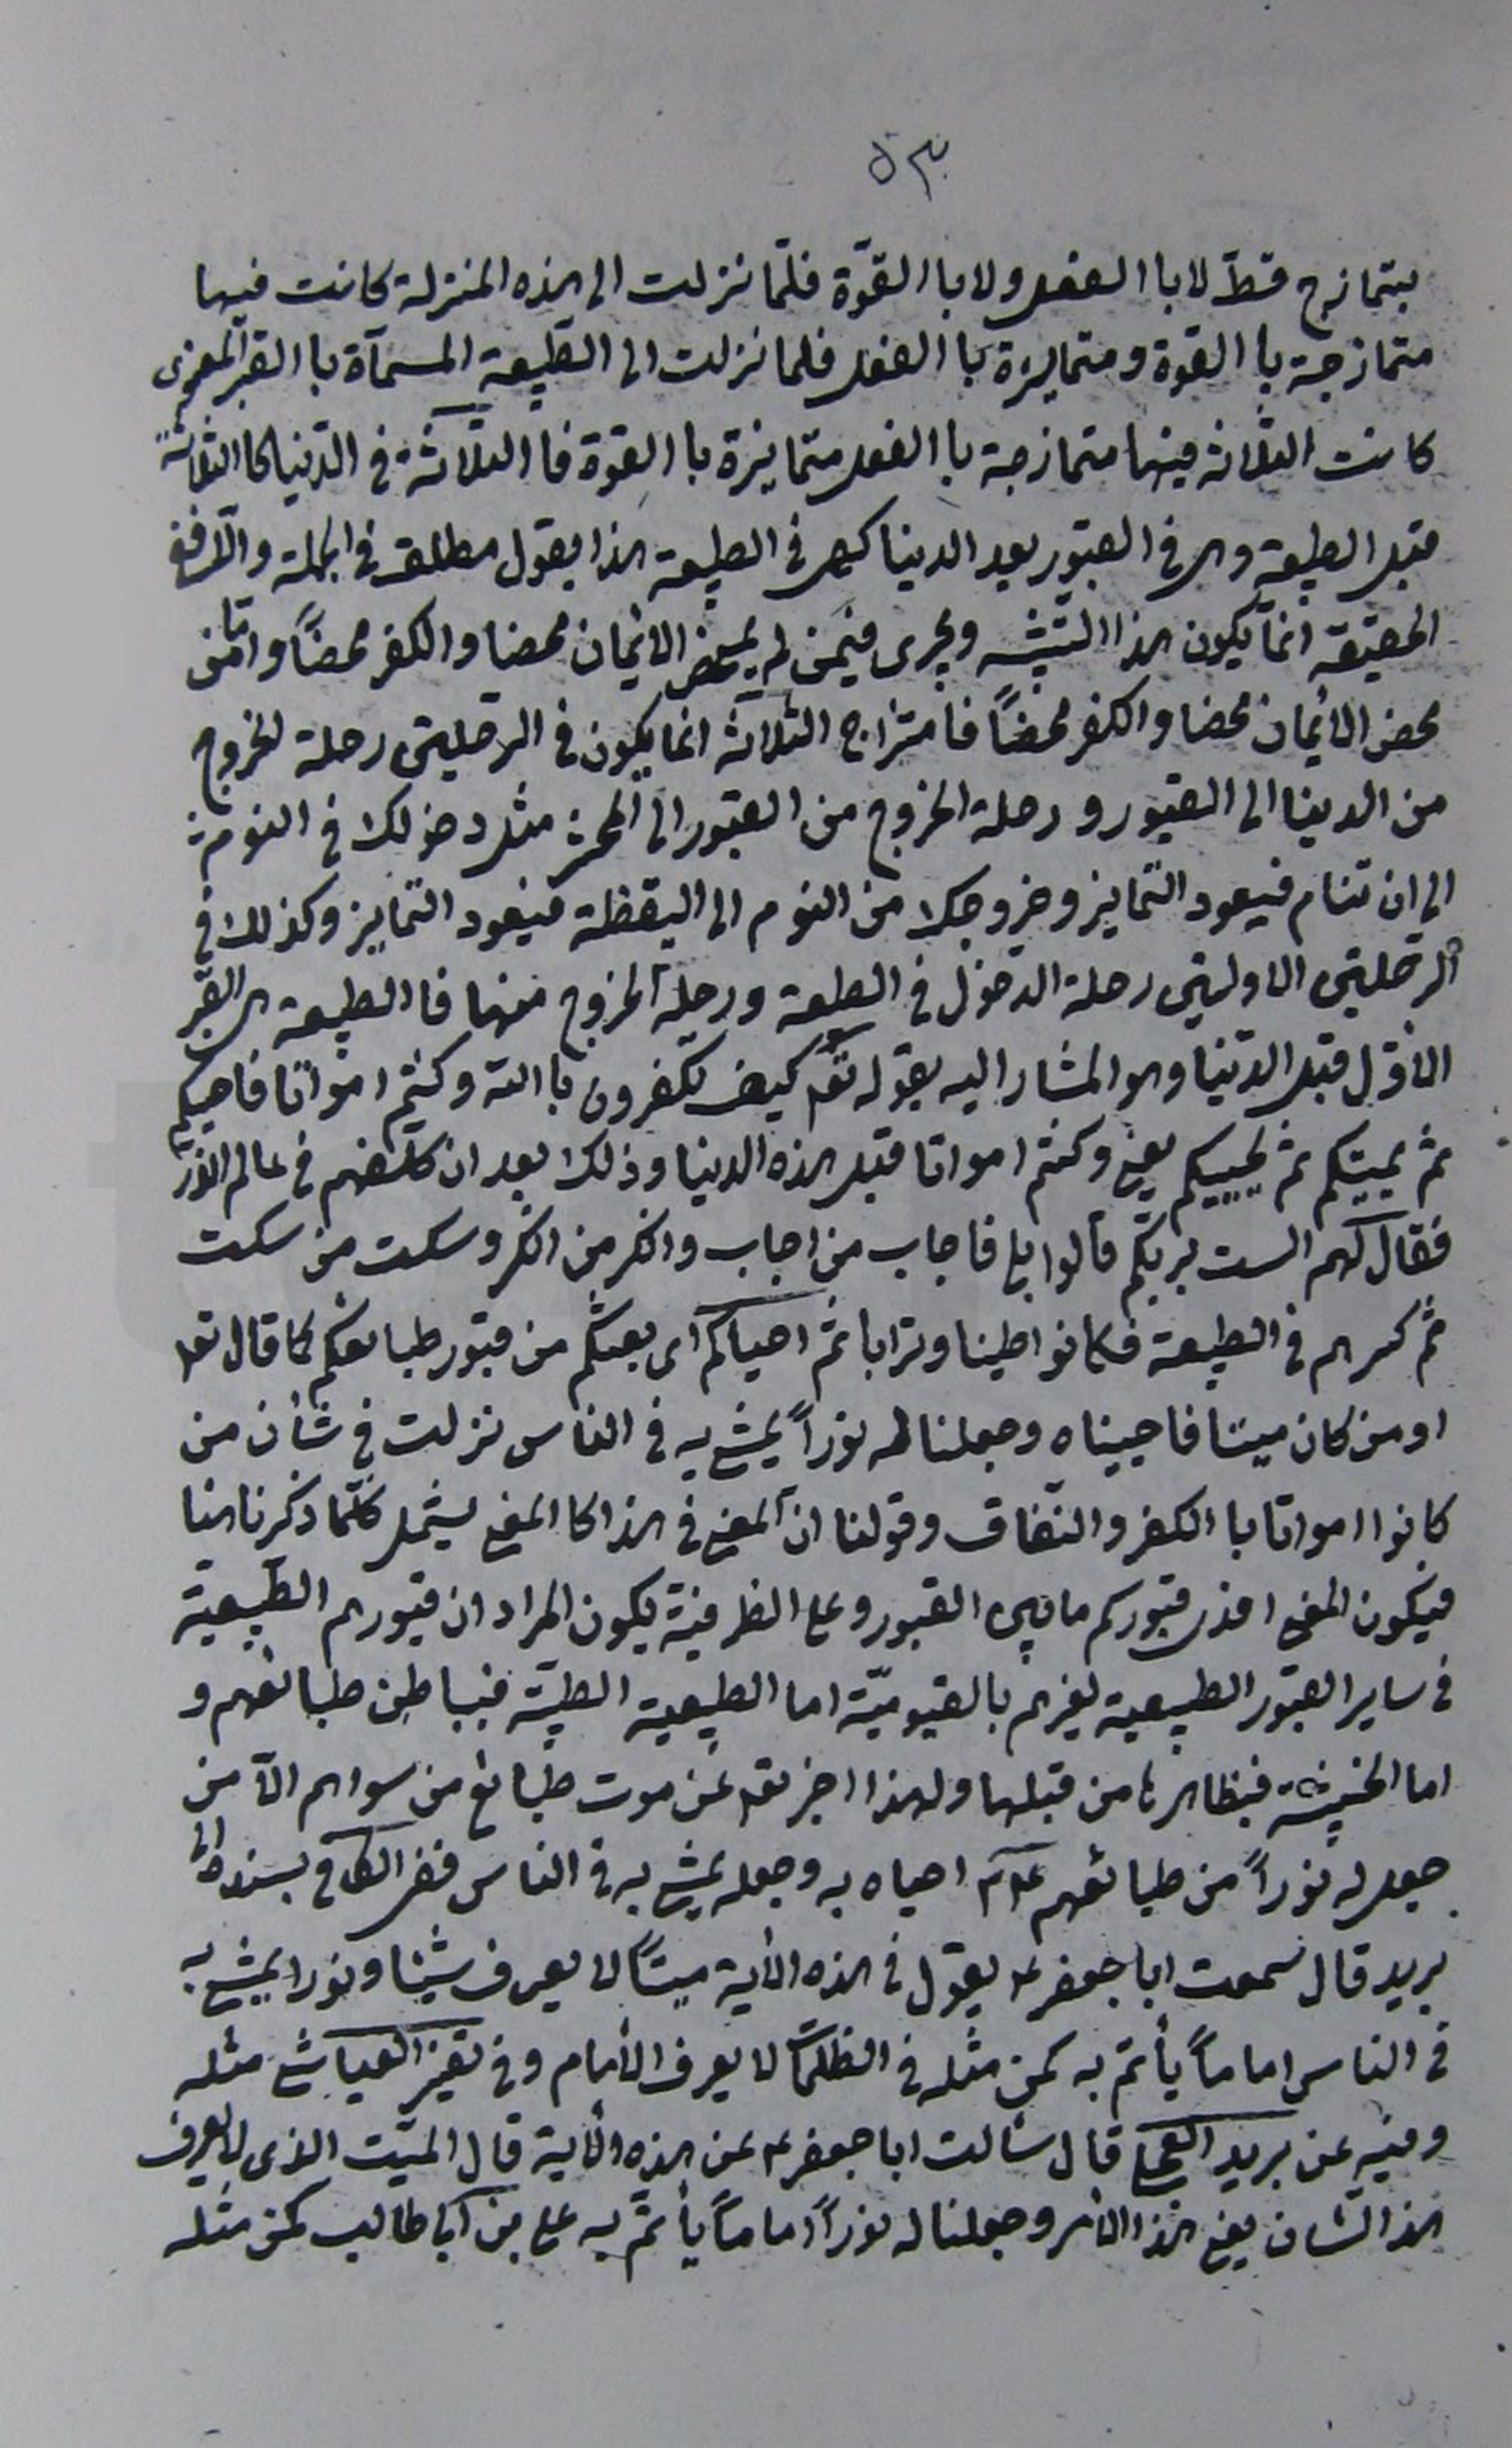 ٥٣٠
بتمازج قط لا با الفعل ولا با القوّة فلمّا نزلت الى هذه المنزلة كانت فيها
متمازجة با القوة ومتمايزة با الفعل فلما نزلت الى الطبيعة المسمآة با القبر
كانت الثلاثة فيها متمازجة با الفعل متمايزة با القوة فا الثلاثة فى الدّنيا كا الثلاثة
قبل الطبيعة وهى فى القبور بعد الدينا كهى فى الطبيعة هذا بقول مطلق فى الجملة والّا ففى
الحقيقة انمّا يكون هذا التشبيه ويجرى فيمن لم يمحض الايمان محضا والكفر محضاً وامّا من
محض الايمان محضا والكفر محضاً فامتزاج الثلاثة انما يكون فى الرحلتين رحلة الخروج
من الدينا الى القبور و رحلة الخروج من القبور الى المحشر مثل دخولك فى النوم
الى ان تنام فيعود التمايز وخروجك من النوم الى اليقظة فيعود التمايز وكذلك فى
الرحلتين الاوليين رحلة الدخول فى الطبيعة ورحلة الخروج منها فا الطبيعة هى القبر
الاوّل قبل الدّنيا وهو المشار اليه بقوله تعالى كيف تكفرون با الله وكنتم امواتا فاحيكم
ثم يميتكم ثم يحييكم يعنى وكنتم امواتا قبل هذه الدينا وذلك بعد ان كلفهم فى عالم الذر
فقال لهم الست بربكم قالوا بلى فاجاب من اجاب وانكر من انكر وسكت من سكت
ثم كسرهم فى الطبيعة فكانوا طينا وترابا ثم احياكم اى بعثكم من قبور طبائعكم كما قال تعا
او من كان ميتا فاحييناه وجعلنا له نوراً يمشى به فى الناس نزلت فى شأن من
كانوا امواتا با الكفر والنّفاق وقولنا انّ المعنى فى هذا كا المعنى يشمل كلّما ذكرنا هنا
فيكون المعنى قبوركم القبور وعلى الظرفيّة يكون المراد ان قبورهم الطبيعية
فى ساير القبور الطبيعية لغيرهم بالقيوميّة اما الطبيعية الطيّبة فبباطن طبائعهم و
اما الخبيثة فبظاهرها من قبلها ولهذا اخبر تعا عن موت طبائع من سواهم الّا من
جعل له نوراً من طبائعهم احياه به وجعله يمشى به فى الناس ففى الكافى بسنده الى
بريد قال سمعت ابا جعفر ع يقول فى هذه الأية ميتاً لا يعرف شيئا ونورا يمشى به
فى الناس اماماً يأتم به كمن مثله فى الظلمات لا يعرف الأمام وفى تفسير العياشى مثله
وفيه عن بريد العجلى قال سألت ابا جعفر ع عن هذه الأية قال الميّت الذى لا يعرف
هذا الشان يعنى هذا الأمر وجعلنا له نوراً اماماً يأتمّ به على بن ابا طالب كمن مثله